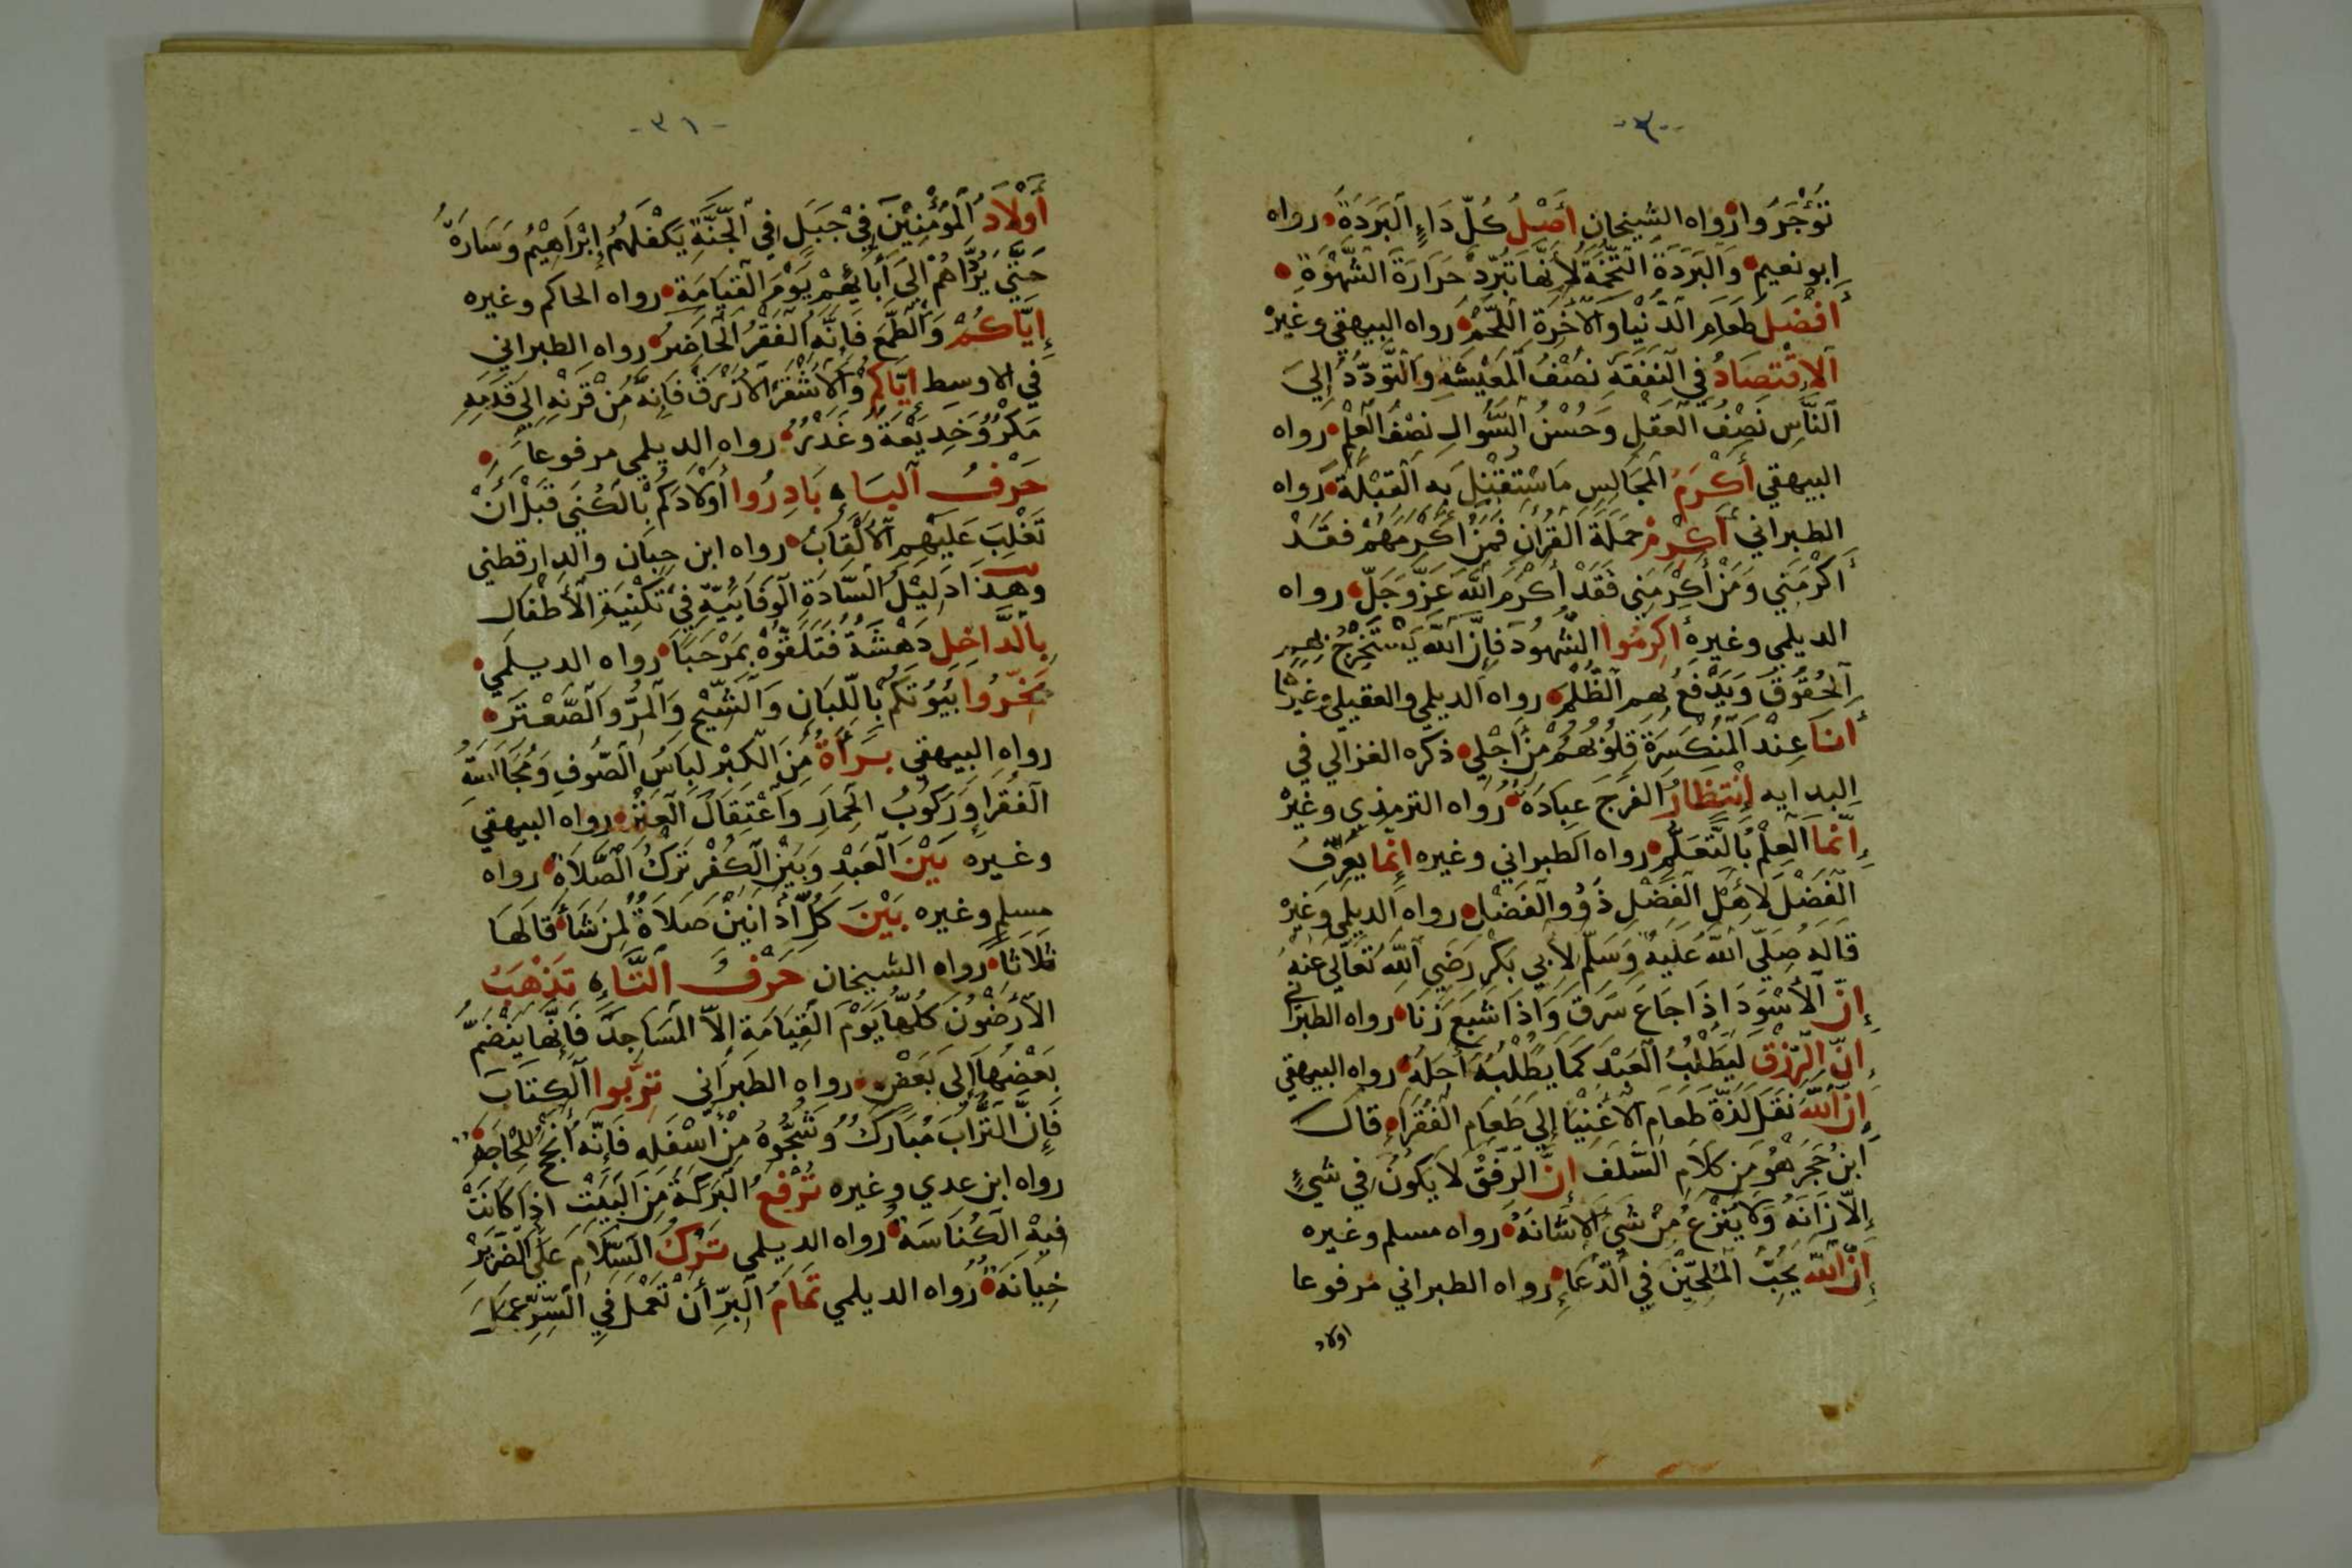 -٣٠-
تُؤْجَرُوا رواه الشيخان أَصْلُ كُلِّ دَاءٍ ٱلبَرَدَةُ رواه
ابو نعيم وَٱلبَرَدَةُ التُّخَمَةُ لِأَنَّهَا تُبَرِّدُ حَرَارَةَ الشَّهْوَةِ
أَفْضَلُ طَعَامِ الدُّنْيَا وَٱلآخِرَةِ اللَّحْمُ رواه البيهقي وغيره
ٱلاِقْتِصَادُ فِي ٱلنَّفَقَةِ نِصْفُ ٱلمَعِيْشَةِ وَٱلتَّوَدُّدُ إِلَى
ٱلنَّاسِ نِصْفُ ٱلعَقْلِ وَحُسْنُ السُّوَالِ نِصْفُ العِلْمِ رواه
البيهقي أَكْرَمُ المَجَالِسِ مَا سْتُقْبِلَ بِهِ القِبْلَةُ رواه
الطبراني أَكْرِمُوْ حَمَلَةَ القُرْآنِ فَمَنْ أَكْرَمَهُمْ فَقَدْ
أَكْرَمَنِي وَمَنْ أَكْرَمَنِي فَقَدْ أَكْرَمَ اللّٰهَ عَزَّ وَجَلَّ رواه
الديلمي وغيره أَكْرِمُوا الشُّهُودَ فَإِنَّ اللّٰهَ يَسْتَخْرِجُ بِهِمِ
ٱلحُقُوقَ وَيَدْفَعُ بِهِمِ ٱلظُّلْمَ رواه الديلمي والعقيلي وغيرها
أَنَا عِنْدَ المُنْكَسِرَةِ قُلُوْبُهُمْ مِنْ أَجْلِي ذكره الغزالي في
البدايه إِنْتِظَارُ الفَرَجِ عِبَادَةٌ رواه الترمذي وغيره
إِنَّمَا العِلْمُ بِالتَّعَلُّمِ رواه الطبراني وغيره إِنَّمَا يَعْرِفُ
الفَضْلَ لِأَهْلِ الفَضْلِ ذَوُو الفَضْلِ رواه الديلمي وغيره
قَالَهُ صَلَّى اللّٰهُ عَلَيْهِ وَسَلَّمَ لِأَبِي بَكْرٍ رَضِيَ اللّٰهُ تَعَالَى عَنْهُ
إِنَّ الأَسْوَدَ إِذَا جَاعَ سَرَقَ وَإِذَا شَبِعَ زَنَا رواه الطبراني
إِنَّ الرِّزْقَ لَيَطْلُبُ العَبْدَ كَمَا يَطْلُبُهُ أَجَلُهُ رواه البيهقي
إِنَّ اللّٰهَ نَقَلَ لَذَّةَ طَعَامِ الأَغْنِيَا إِلَى طَعَامِ الفُقَرَاءِ قال
ابنُ حَجَرٍ هُوَ مِنْ كَلَامِ السَّلَفِ إِنَّ الرِّفْقَ لَا يَكُونُ فِي شَيْءٍ
إِلَّا زَانَهُ وَلَا يُنْزَعُ مِنْ شَيْءٍ إِلَّا شَانَهُ رواه مسلم وغيره
إِنَّ اللّٰهَ يُحِبُّ المُلِحِّيْنَ فِي الدُّعَاءِ رواه الطبراني مرفوعا
اولاد
-٣١-
أَوْلَادُ المُؤْمِنِيْنَ فِيْ جَبَلٍ فِي ٱلجَنَّةِ يَكْفُلُهُمُ إِبْرَاهِيْمُ وَسَارَةُ
حَتَّى يَرُدَّاهُمْ إِلَى أَبَائِهِمْ يَوْمَ القِيَامَةِ رواه الحاكم وغيره
إِيَّاكُمْ وَالطَّمَعَ فَإِنَّهُ الفَقْرُ الحَاضِرُ رواه الطبراني
في الاوسط إِيَّاكُمْ وَٱلأَشْقَرَ ٱلأَزْرَقَ فَإِنَّهُ مِنْ قَرْنِهِ إِلَى قَدَمِهِ
مَكْرٌ وَخَدِيْعَةٌ وَغَدْرٌ رواه الديلمي مرفوعا
حَرْفُ ٱلبَاءِ بَادِرُوا أَوْلَادَكُمْ بِالكُنَى قَبْلَ أَنْ
تَغْلِبَ عَلَيْهِمِ ٱلأَلْقَابُ رواه ابن حبان والدارقطني
وَهٰذَا دَلِيْلُ السَّادَةِ ٱلوَفَائِيَّةِ فِي تَكْنِيَةِ الأَطْفَالِ
بِالدَّاخِلِ دَهْشَةٌ فَتَلَقَّوْهُ بِمَرْحَبًا رواه الديلمي
بَخِّرُوا بُيُوتَكُمْ بِاللِّبَانِ وَالشِّيْحِ وَالمُرِّ وَالصَّعْتَرِ
رواه البيهقي بَرَأَةٌ مِنَ الكِبْرِ لِبَاسُ الصُّوفِ وَمُجَالَسَةُ
الفُقَرَاءِ وَرُكُوبُ الحِمَارِ وَٱعْتِقَالُ العَنْزِ رواه البيهقي
وغيره بَيْنَ العَبْدِ وَبَيْنَ الكُفْرِ تَرْكُ الصَّلَاةِ رواه
مسلم وغيره بَيْنَ كُلِّ أَذَانَيْنِ صَلَاةٌ لِمَنْ شَأَ قَالَهَا
ثَلَاثًا رواه الشيخان حَرْفُ ٱلتَّاءِ تَذْهَبُ
الأَرْضُونَ كُلُّهَا يَوْمَ القِيَامَةِ إِلَّا المَسَاجِدَ فَإِنَّهَا يَنْضَمُّ
بَعْضُهَا إِلَى بَعْضٍ رواه الطبراني تَرِّبُوا الكِتَابَ
فَإِنَّ التُّرَابَ مُبَارَكٌ وَسَحُّوهُ مِنْ أَسْفَلِهِ فَإِنَّهُ أَنْجَحُ لِلْحَاجَةِ
رواه ابن عدي وغيره تُرْفَعُ البَرَكَةُ مِنَ البَيْتِ إِذَا كَانَتْ
فِيْهِ الكُنَاسَةُ رواه الديلمي تَرْكُ السَّلَامِ عَلَى الضَّرِيْرِ
خِيَانَةٌ رواه الديلمي تَمَامُ البِرِّ أَنْ تَعْمَلَ فِي السِّرِّ عَمَلَ